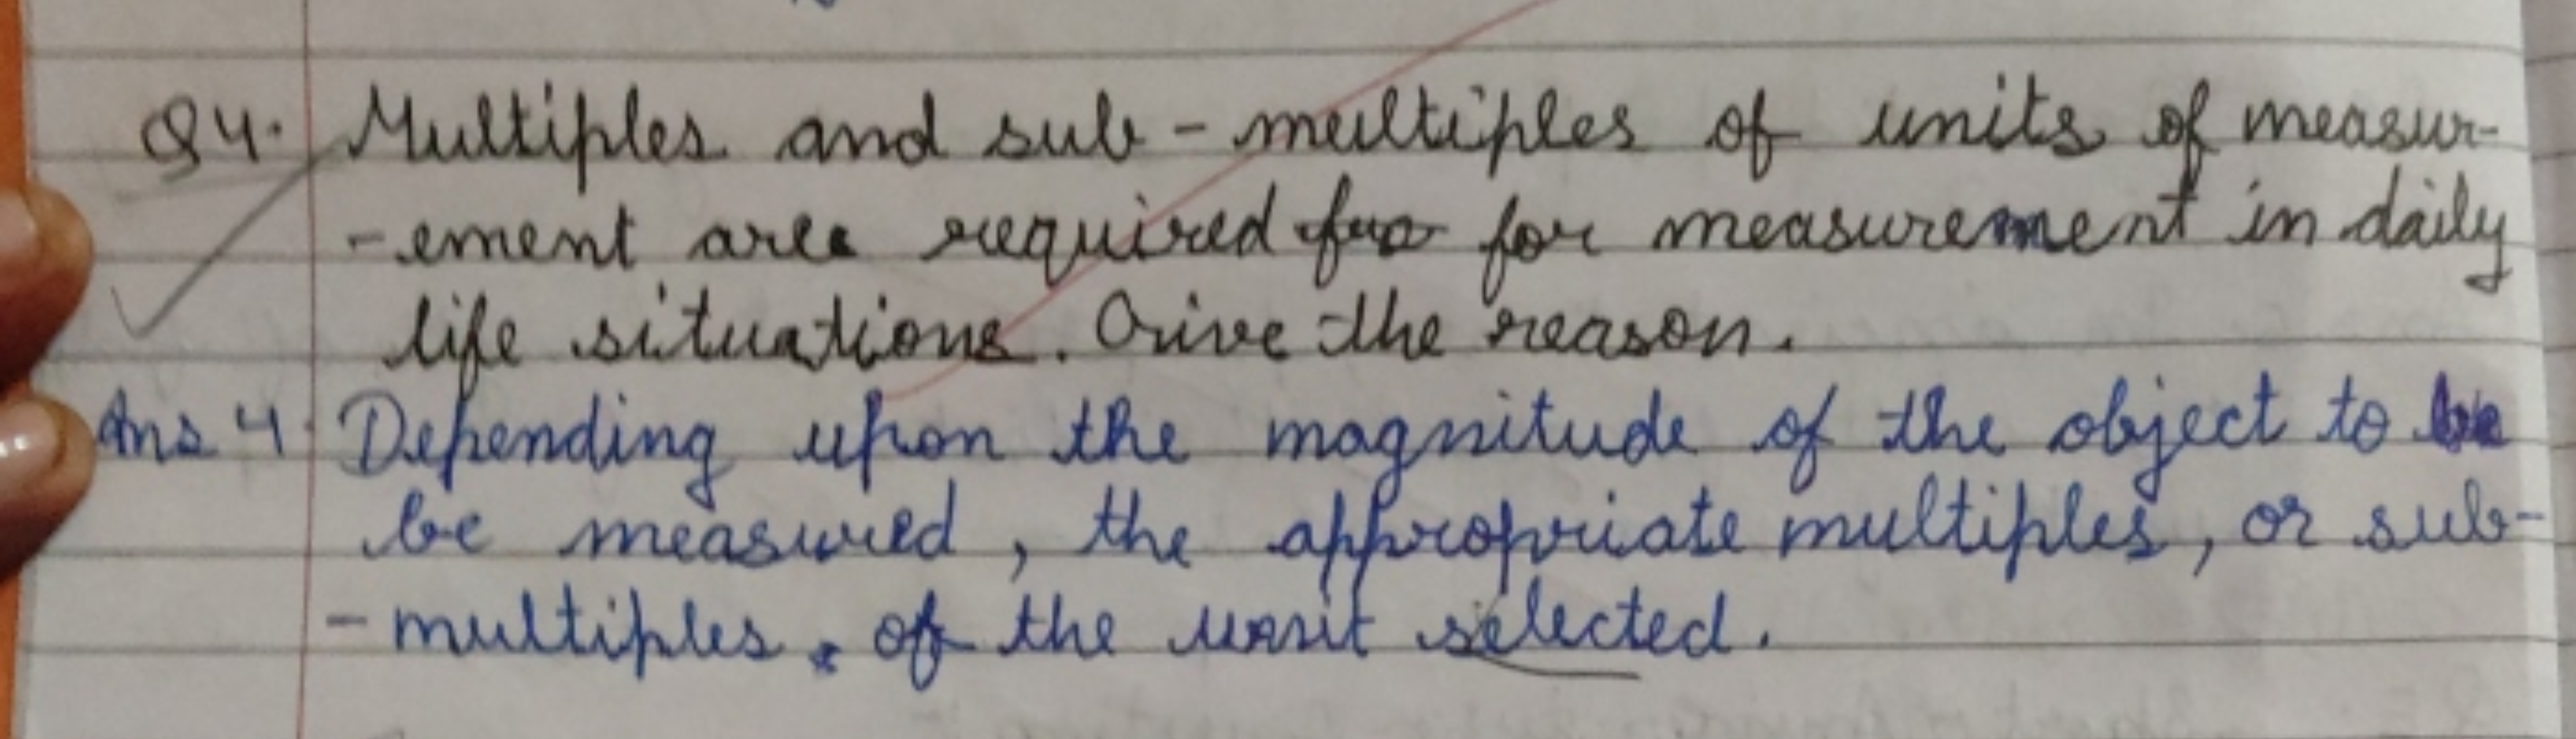 Q4. Multiples and sub-multiples of units of measur-
-ement are required for for measurement in daily
life situations. Give the reason.
Ans 4. Depending upon the magnitude of the object to be
be measured, the appropriate multiples, or sub-
-multiples. of the unit selected.